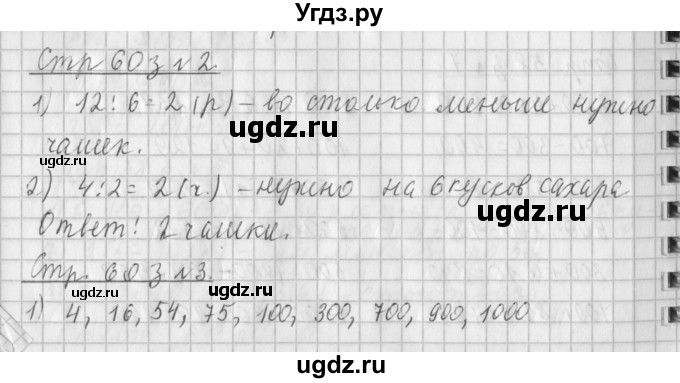 Угдз.ру
Стр 60 з №2.
1) 12 : 6 = 2 (р) – во столько меньше нужно
ugdz.ru
чашек.
ugdz.ru
2) 4 : 2 = 2 (ч.) – нужно на 6 кусков сахара
ugdz.ru
Ответ: 2 чашки.
ugdz.ru
Стр. 60 з №3.
ugdz.ru
ugdz.ru
1) 4, 16, 54, 75, 100, 300, 700, 900, 1000
ugdz.ru